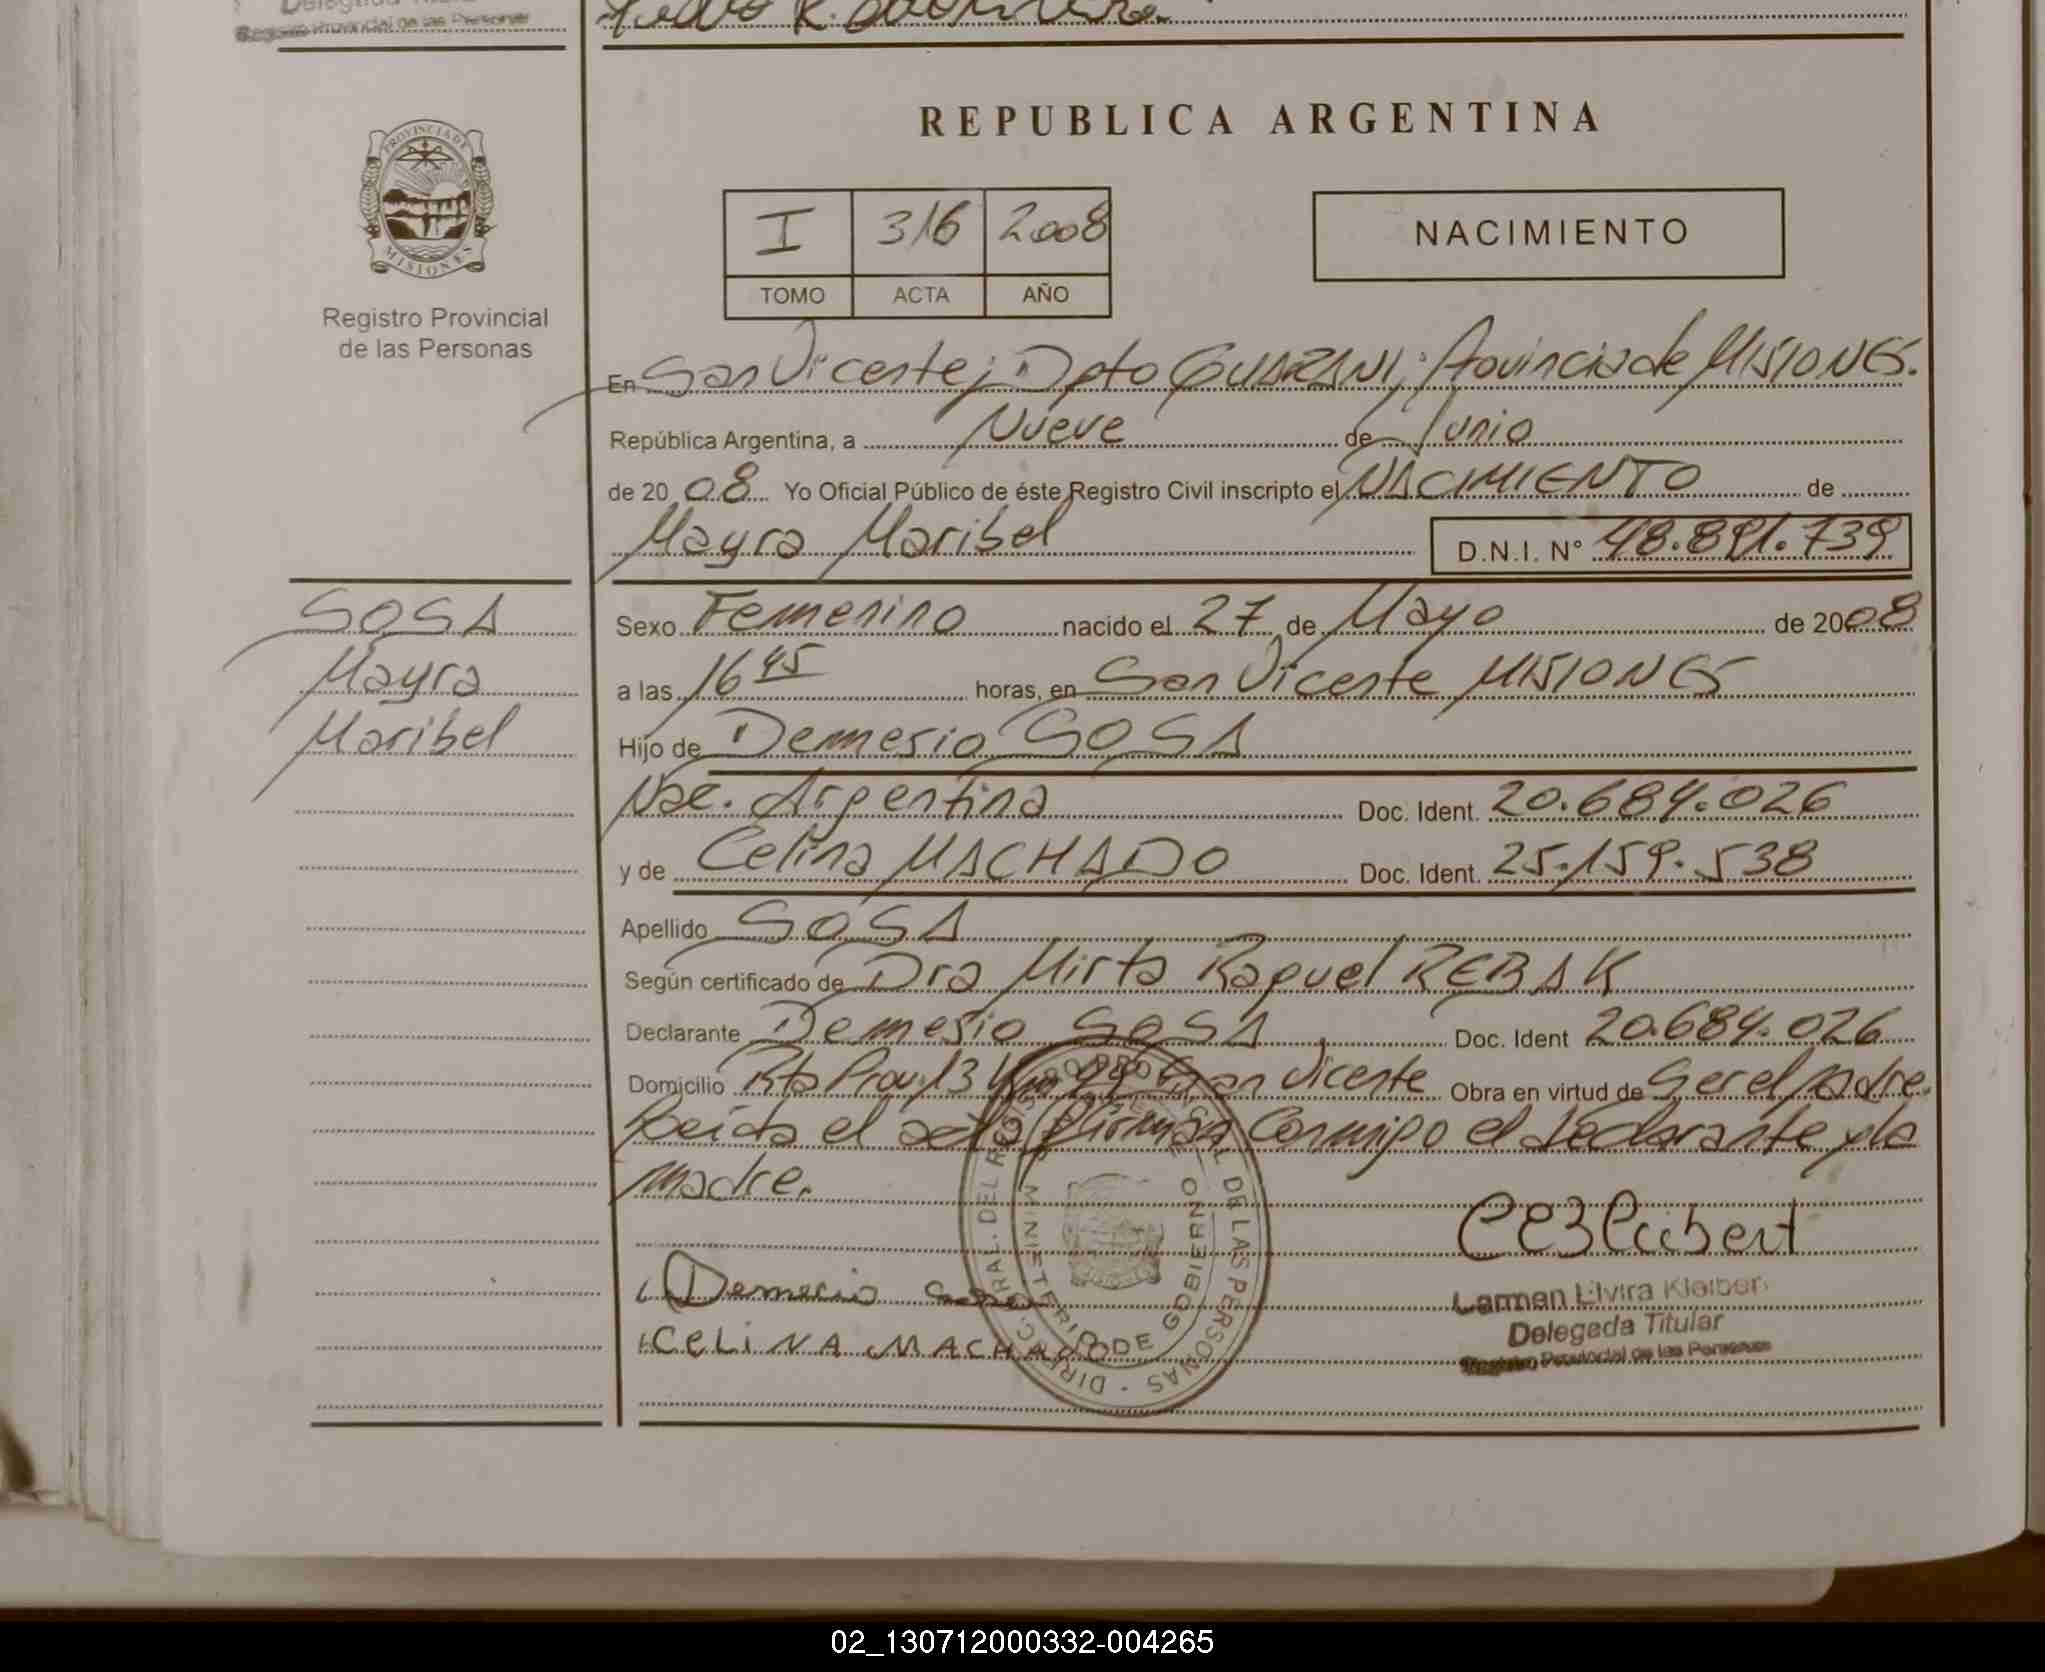 Registro Provincial de las Personas
REPUBLICA ARGENTINA
PROVINCIA DE MISIONES
Registro Provincial
de las Personas
I 316 2008
TOMO ACTA AÑO
NACIMIENTO
En San Vicente; Dpto GUARANI; Provincia de MISIONES.
República Argentina, a Nueve de Junio
de 20 08 Yo Oficial Público de éste Registro Civil inscripto el NACIMIENTO de
Mayra Maribel D.N.I. N° 48.891.739
SOSA
Mayra
Maribel
Sexo Femenino nacido el 27 de Mayo de 2008
a las 16 45 horas, en San Vicente MISIONES
Hijo de Demesio SOSA
Nac. Argentina Doc. Ident. 20.684.026
y de Celina MACHADO Doc. Ident. 25.159.538
Apellido SOSA
Según certificado de Dra Mirta Raquel REBAK
Declarante Demesio SOSA Doc. Ident 20.684.026
Domicilio Rta Prov. 13 San Vicente Obra en virtud de Ser el padre.
Leida el acta Firman Conmigo el declarante y la
madre.
DIREC. GRAL. DEL REGISTRO PROVINCIAL DE LAS PERSONAS
MINISTERIO DE GOBIERNO
Demecio Sosa
CELINA MACHADO
Carmen Elvira Kleibert
Delegada Titular
Registro Provincial de las Personas
02_130712000332-004265